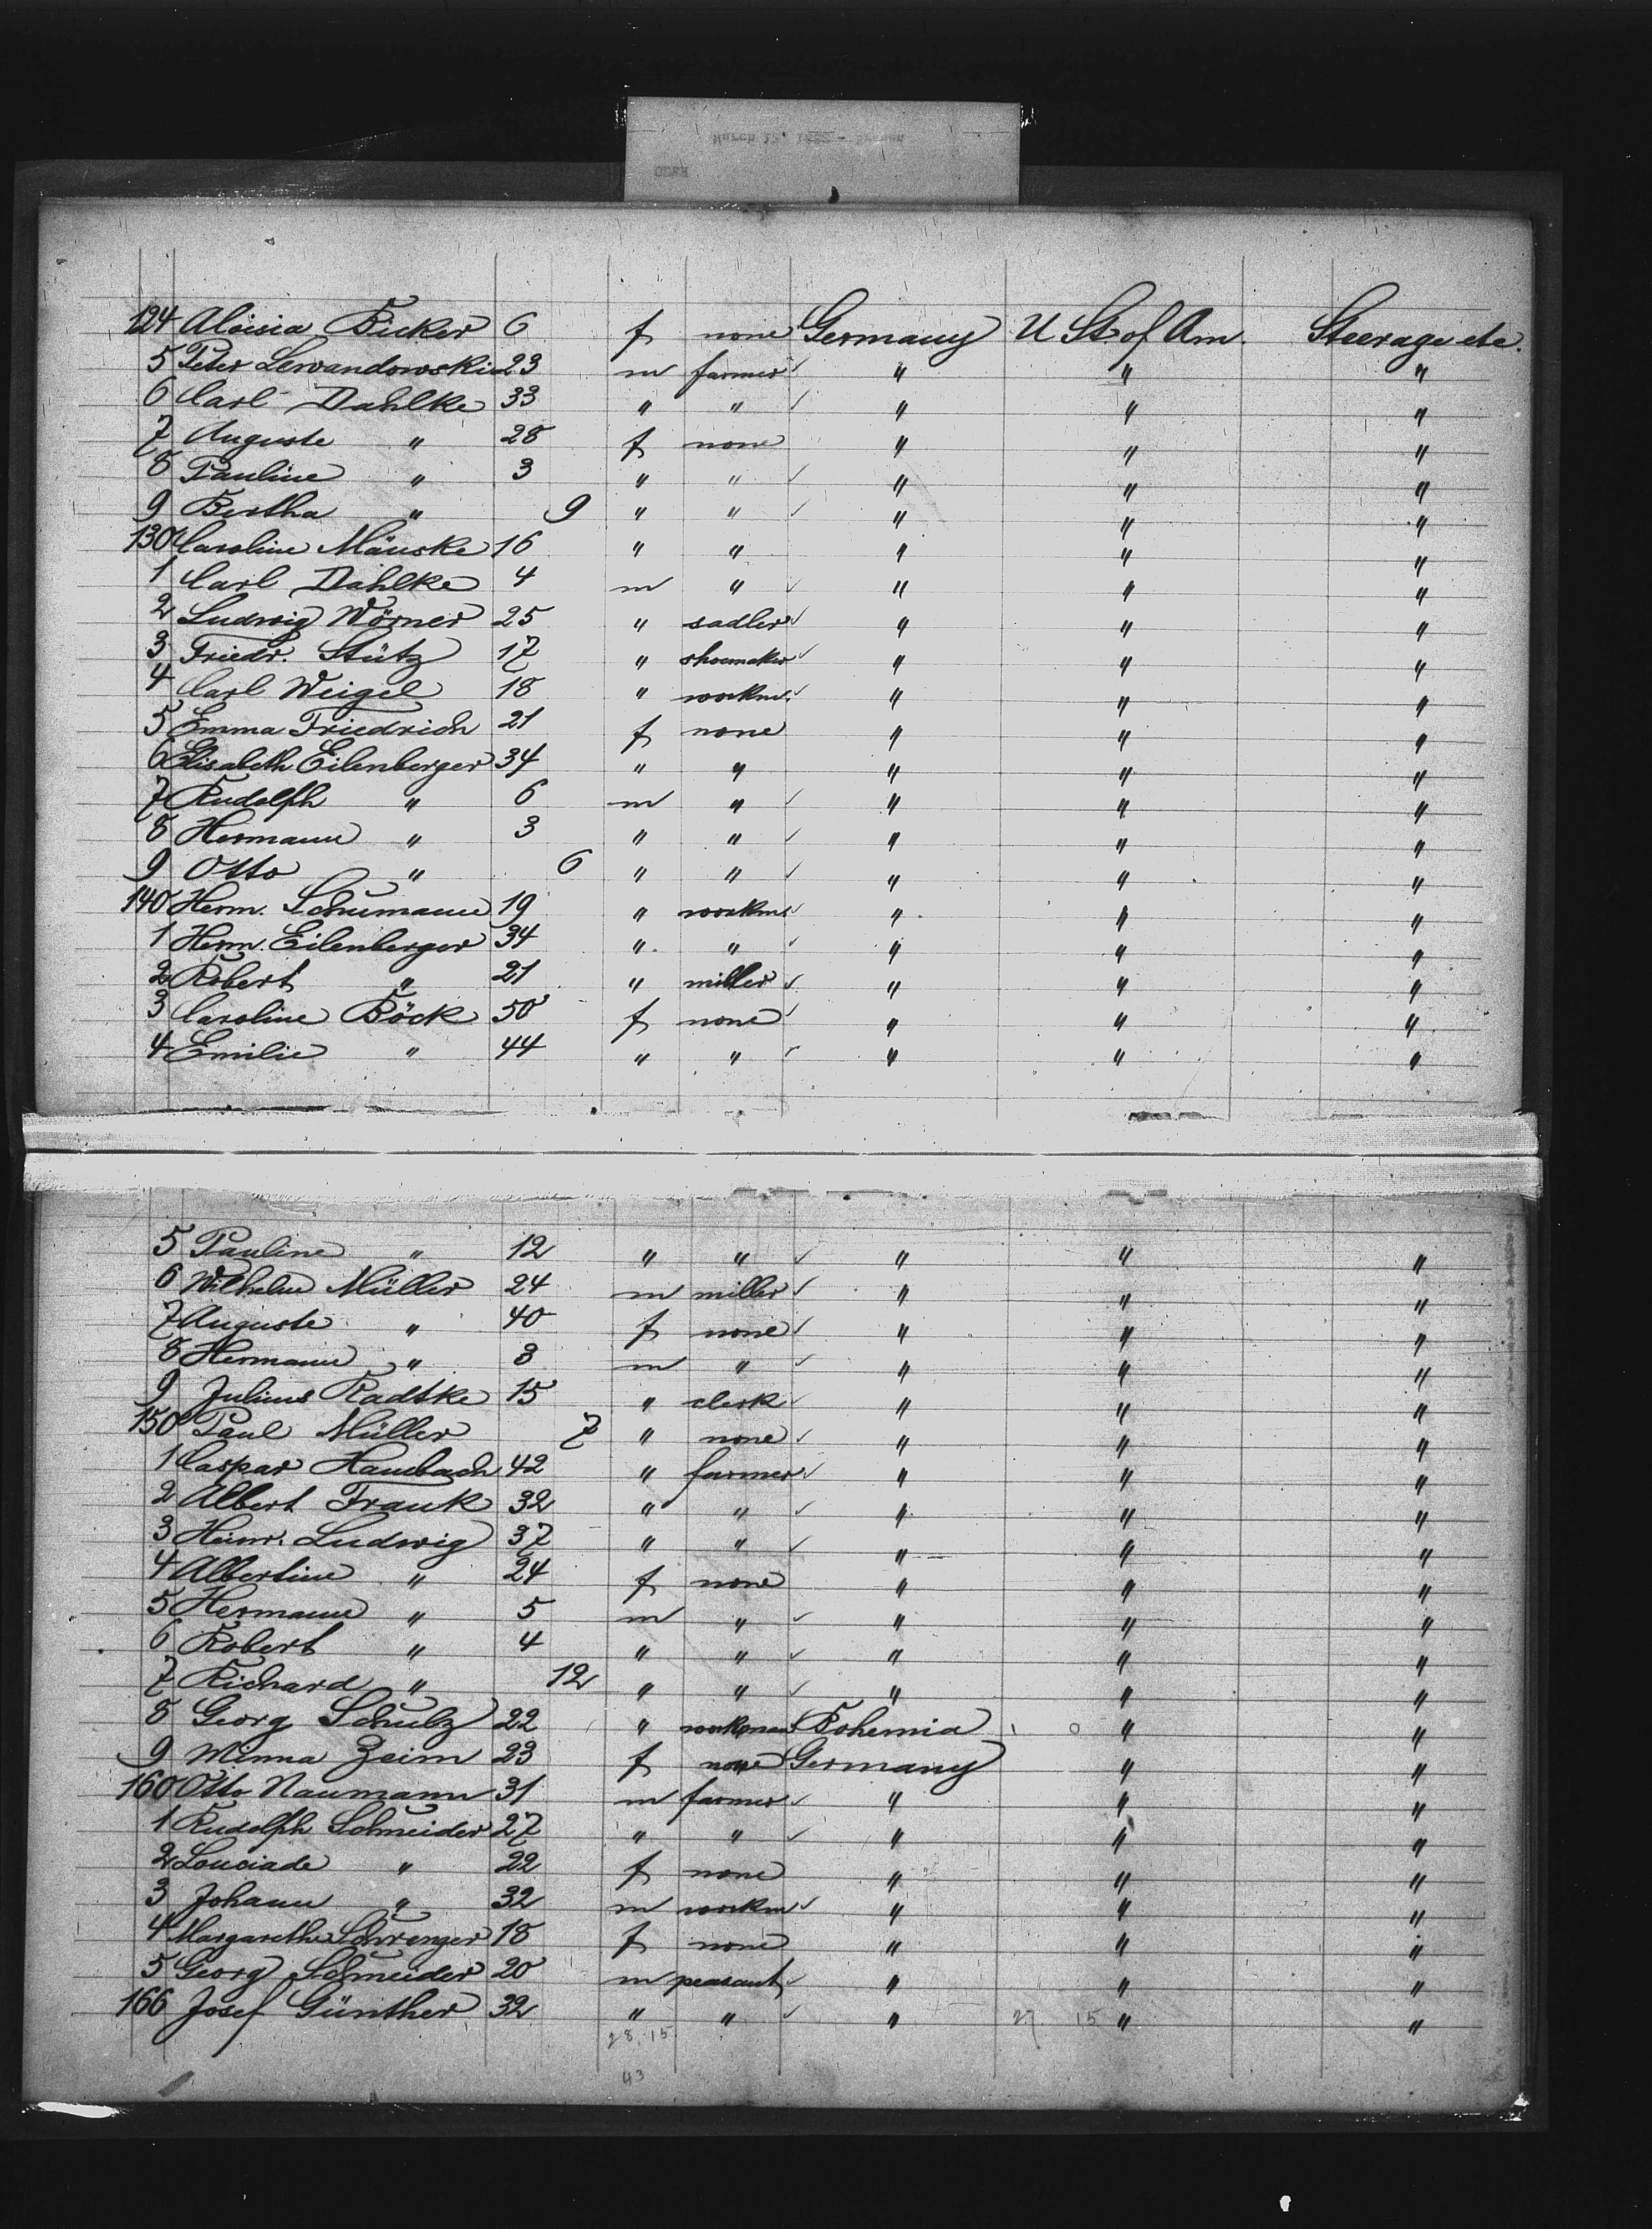 124 Aloisia Bicker 6 f none Germany U St. of Am. Steerage etc.
5 Peter Lewandowski 23 m farmer " " "
6 Carl Dahlke 33 " " " " "
7 Auguste " 28 f none " " "
8 Pauline " 3 " " " " "
9 Bertha " 9 " " " " "
130 Caroline Mänske 16 " " " " "
1 Carl Dahlke 4 m " " " "
2 Ludwig Wörner 25 " sadler " " "
3 Friedr. Stütz 17 " shoemaker " " "
4 Carl Weigel 18 " workm. " " "
5 Emma Friedrich 21 f none " " "
6 Elisabeth Eilenberger 34 " " " " "
7 Rudolph " 6 m " " " "
8 Hermann " 3 " " " " "
9 Otto " 6 " " " " "
140 Herm. Schumann 19 " workm " " "
1 Herm. Eilenberger 34 " " " " "
2 Robert " 21 " miller " " "
3 Caroline Böck 50 f none " " "
4 Emilie " 44 " " " " "
5 Pauline " 12 " " " " "
6 Wilhelm Müller 24 m miller " " "
7 Auguste " 40 f none " " "
8 Hermann " 3 m " " " "
9 Julius Radtke 15 " clerk " " "
150 Paul Müller 7 " none " " "
1 Caspar Haubach 42 " farmer " " "
2 Albert Frank 32 " " " " "
3 Heinr. Ludwig 37 " " " " "
4 Albertine " 24 f none " " "
5 Hermann " 5 m " " " "
6 Robert " 4 " " " " "
7 Richard " 12 " " " " "
8 Georg Schulz 22 " workman Bohemia " "
9 Minna Zeim 23 f none Germany " "
160 Otto Naumann 31 m farmer " " "
1 Rudolph Schneider 27 " " " " "
2 Louciade " 22 f none " " "
3 Johann " 32 m workm " " "
4 Margarethe Schrenger 18 f none " " "
5 Georg Schneider 20 m peasant " " "
166 Josef Günther 32 " " " " "
27 15
28 15
43